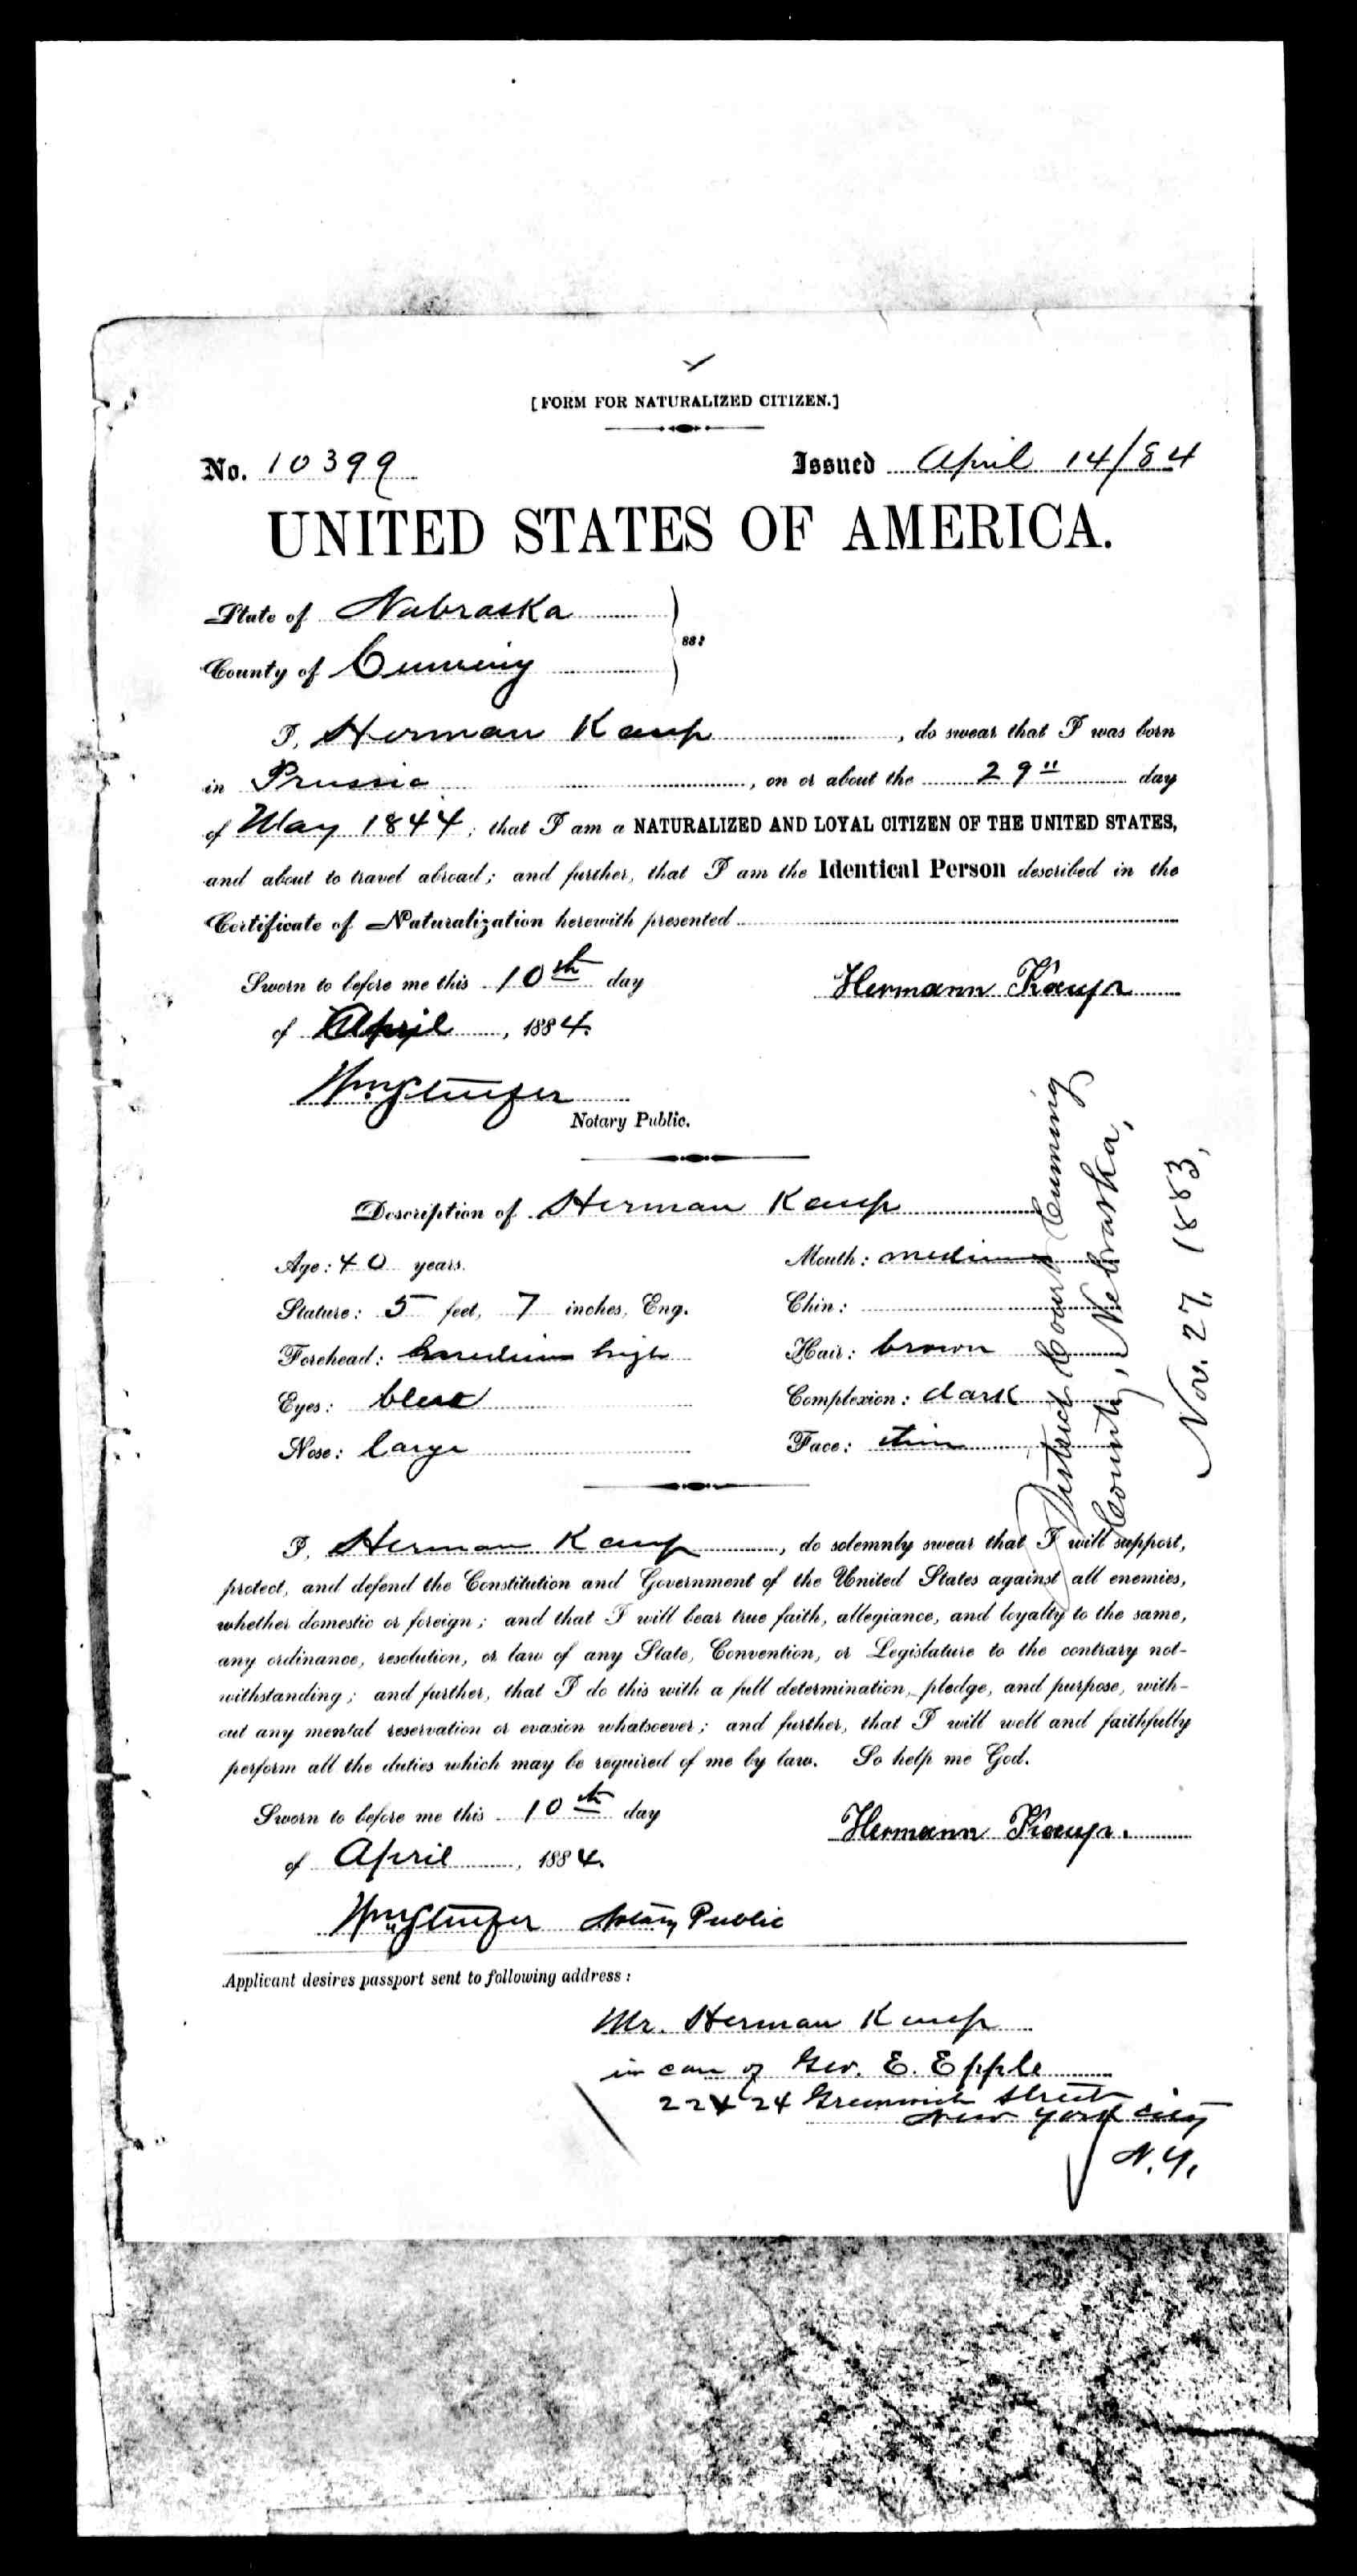 [FORM FOR NATURALIZED CITIZEN.]
No. 10399 Issued April 14/84
UNITED STATES OF AMERICA.
State of Nebraska
County of Cuming } ss:
I, Herman Kamp, do swear that I was born
in Prussia, on or about the 29" day
of May 1844; that I am a NATURALIZED AND LOYAL CITIZEN OF THE UNITED STATES,
and about to travel abroad; and further, that I am the Identical Person described in the
Certificate of Naturalization herewith presented
Sworn to before me this 10th day
of April, 1884.
Hermann Kamp
Notary Public.
Description of Herman Kamp
Age: 40 years. Mouth: medium
Stature: 5 feet, 7 inches, Eng. Chin:
Forehead: medium high Hair: brown
Eyes: blue Complexion: dark
Nose: large Face: thin
District Court Cuming
County, Nebraska,
Nov. 27, 1883,
I, Herman Kamp, do solemnly swear that I will support,
protect, and defend the Constitution and Government of the United States against all enemies,
whether domestic or foreign; and that I will bear true faith, allegiance, and loyalty to the same,
any ordinance, resolution, or law of any State, Convention, or Legislature to the contrary not-
withstanding; and further, that I do this with a full determination, pledge, and purpose, with-
out any mental reservation or evasion whatsoever; and further, that I will well and faithfully
perform all the duties which may be required of me by law. So help me God.
Sworn to before me this 10th day
of April, 1884.
Hermann Kamp.
Notary Public
Applicant desires passport sent to following address:
Mr. Herman Kamp
in care of Geo. E. Epple
22 & 24 Greenwich Street
New York City
N.Y.